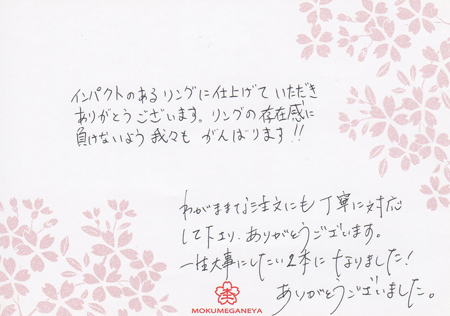 インパクトのあるリングに仕上げていただき
ありがとうございます。リングの存在感に
負けないよう我々もがんばります!!
わがままな注文にも丁寧に対応
して下さり、ありがとうございます。
一生大事にしたい2本になりました!
ありがとうございました。
MOKUMEGANEYA